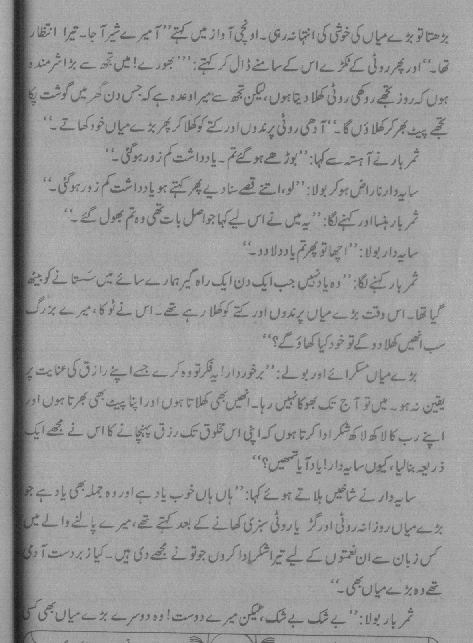 بڑھتا تو بڑے میاں کی خوشی کی انتہا نہ رہی۔ اونچی آواز میں کہتے ’’آ میرے شیر آ جا۔ تیرا انتظار
تھا۔‘‘ اور پھر روٹی کے ٹکڑے اس کے سامنے ڈال کر کہتے: ’’بھورے! میں تجھ سے بڑا شرمندہ
ہوں کہ روز تجھے روکھی روٹی کھلا دیتا ہوں، لیکن تجھ سے میرا وعدہ ہے کہ جس دن گھر میں گوشت پکا
تجھے پیٹ بھر کر کھلاؤں گا۔‘‘ آدھی روٹی پرندوں اور کتے کو کھلا کر پھر بڑے میاں خود کھاتے۔‘‘
ثمر بار نے آہستہ سے کہا: ’’بوڑھے ہو گئے تم۔ یادداشت کم زور ہو گئی۔‘‘
سایہ دار ناراض ہو کر بولا: ’’لو، اتنے قصے سنا دیے پھر کہتے ہو یادداشت کم زور ہو گئی۔‘‘
ثمر بار ہنسا اور کہنے لگا: ’’یہ میں نے اس لیے کہا جو اصل بات تھی وہ تم بھول گئے۔‘‘
سایہ دار بولا: ’’اچھا تو پھر تم یاد دلا دو۔‘‘
ثمر بار کہنے لگا: ’’وہ یاد نہیں جب ایک دن ایک راہ گیر ہمارے سائے میں سستانے کو بیٹھ
گیا تھا۔ اس وقت بڑے میاں پرندوں اور کتے کو کھلا رہے تھے۔ اس نے ٹوکا، میرے بزرگ
سب انھیں کھلا دو گے تو خود کیا کھاؤ گے؟‘‘
بڑے میاں مسکرائے اور بولے: ’’برخوردار! یہ فکر تو وہ کرے جسے اپنے رازق کی عنایت پر
یقین نہ ہو۔ میں تو آج تک بھوکا نہیں رہا۔ انھیں بھی کھلاتا ہوں اور اپنا پیٹ بھی بھرتا ہوں اور
اپنے رب کا لاکھ لاکھ شکر ادا کرتا ہوں کہ اپنی اس مخلوق تک رزق پہنچانے کا اس نے مجھے ایک
ذریعہ بنا لیا، کیوں سایہ دار! یاد آیا تمھیں؟‘‘
سایہ دار نے شاخیں ہلاتے ہوئے کہا: ’’ہاں ہاں خوب یاد ہے اور وہ جملہ بھی یاد ہے جو
بڑے میاں روزانہ روٹی اور گڑ یا روٹی سبزی کھانے کے بعد کہتے تھے، میرے پالنے والے میں
کس زبان سے ان نعمتوں کے لیے تیرا شکر ادا کروں جو تو نے مجھے دی ہیں۔ کیا زبردست آدمی
تھے وہ بڑے میاں بھی۔‘‘
ثمر بار بولا: ’’بے شک بے شک، لیکن میرے دوست! وہ دوسرے بڑے میاں بھی کسی